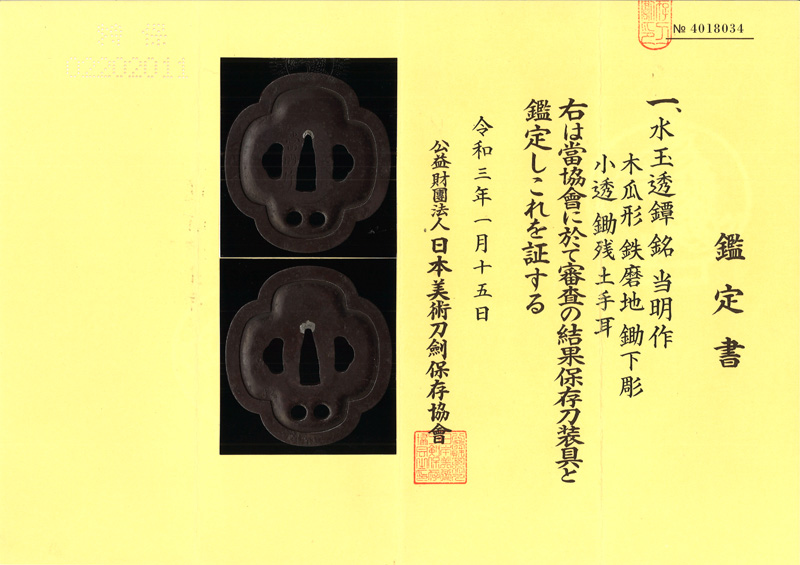 № 4018034
鑑定書
一、水玉透鐔 銘 当明作
木瓜形 鉄磨地 鋤下彫
小透 鋤残土手耳
右は當協會に於て審査の結果保存刀装具と
鑑定しこれを証する
令和三年一月十五日
公益財團法人 日本美術刀劍保存協會
02202011